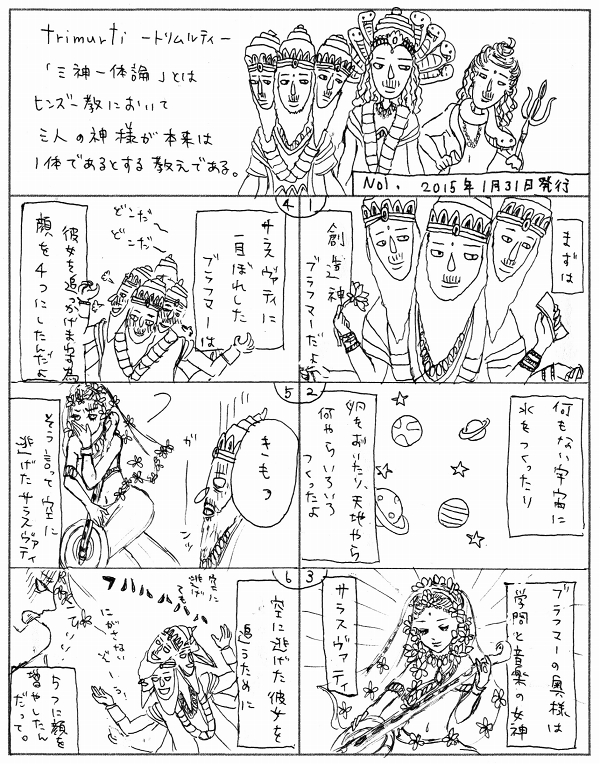 trimurti ートリムルティー
「三神一体論」とは
ヒンズー教において
三人の神様が本来は
1体であるとする教えである。
No1. 2015年1月31日発行
1
まずは
創造神
ブラフマーだよ
2
何もない宇宙に
水をつくったり
卵をおいたり、天地やら
何やらいろいろ
つくったよ
3
ブラフマーの奥様は
学問と音楽の女神
サラスヴァティ
4
サラスヴァティに
一目ぼれした
ブラフマーは
どこだ〜
どこだ〜
彼女を追っかけまわす為
顔を4つにしたんだよ
5
きもっ
ガーンッ
そう言って空に
逃げたサラスヴァティ
6
空に逃げた彼女を
追うために
空に
逃げ
ても
にがさない
ぞーっ
ひいい
5つに顔を
増やしたん
だって。